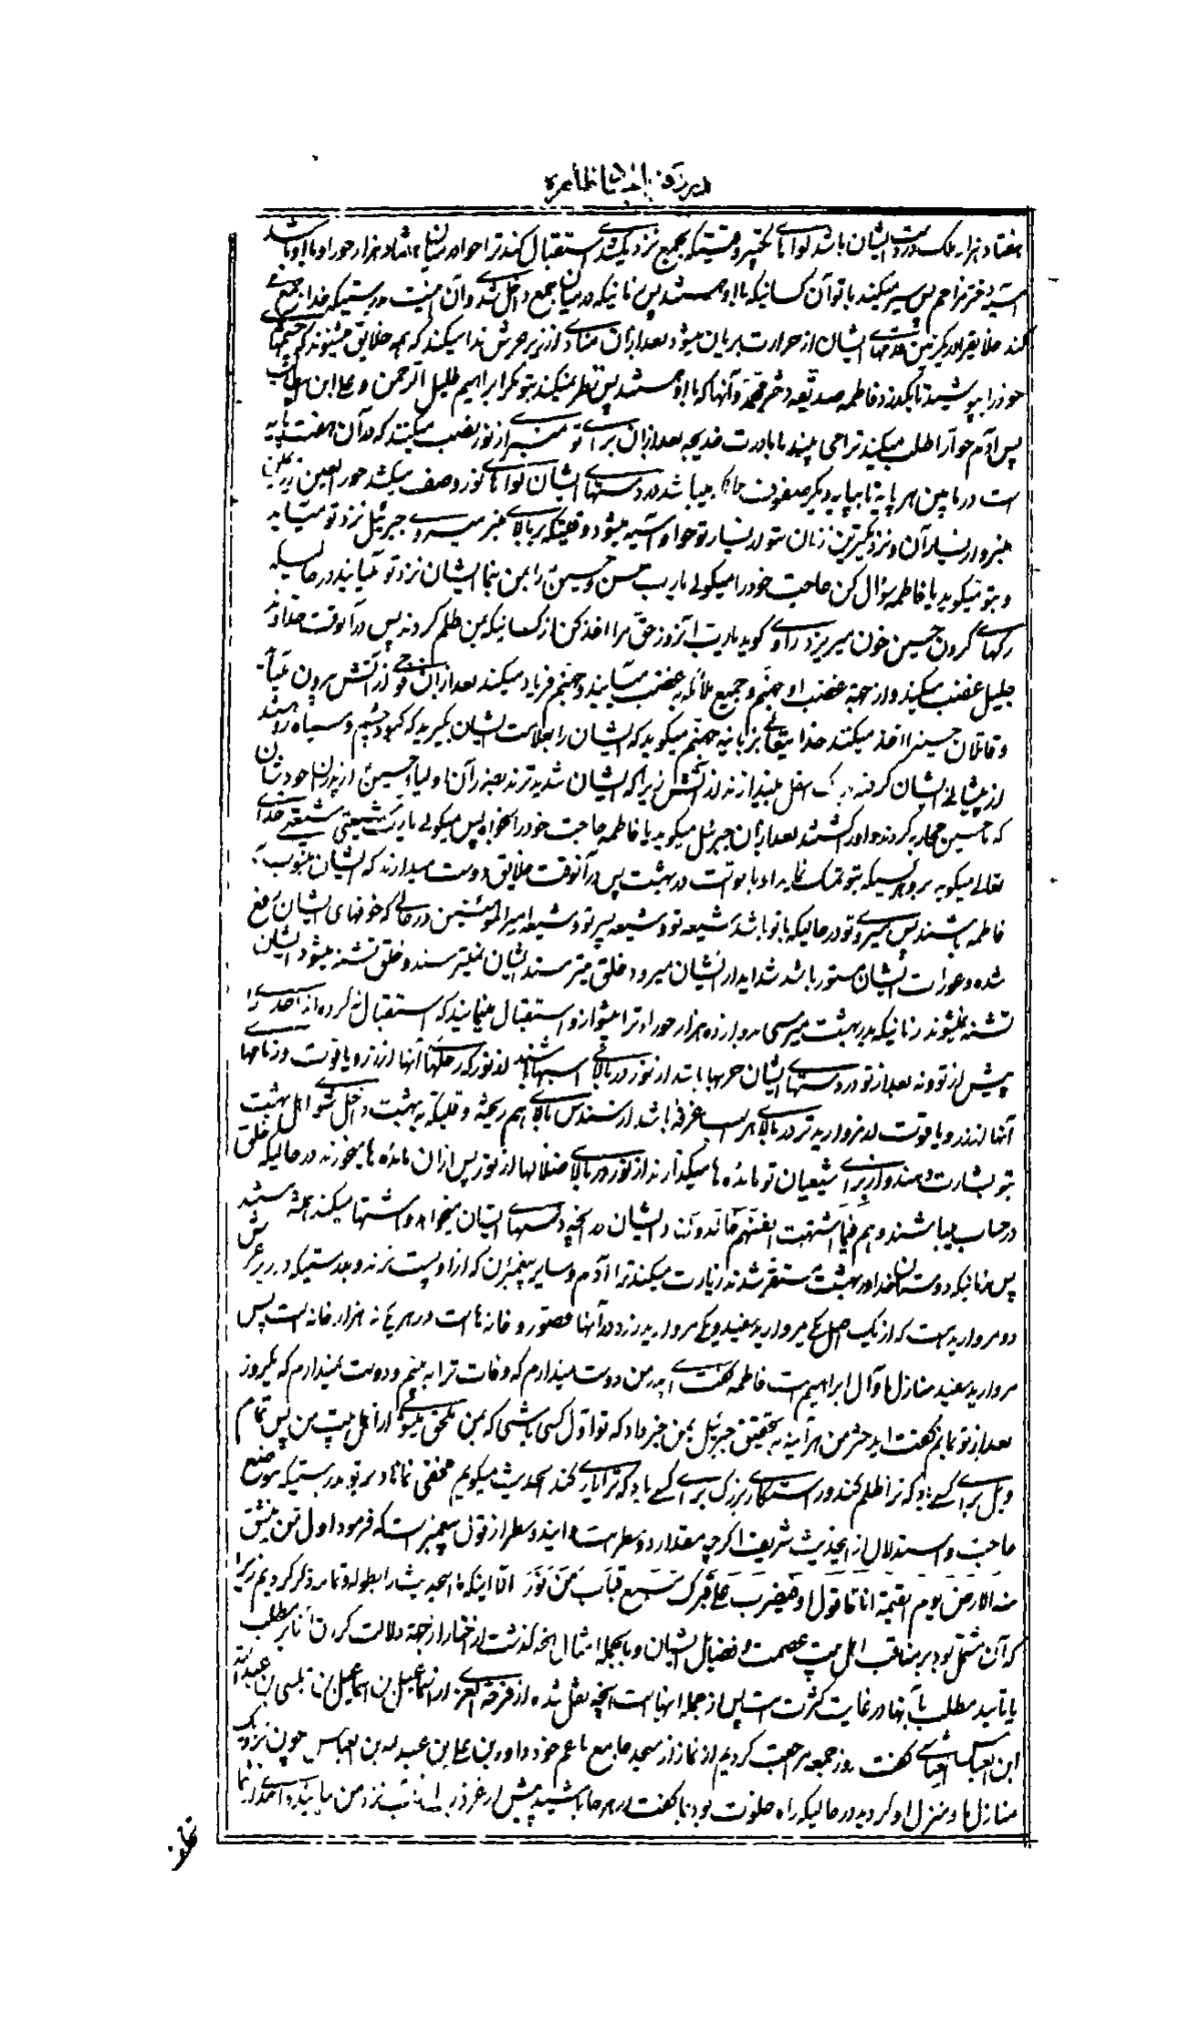 هفتاد هزار ملک در دست ایشان باشد لواهای تکبیر وقتیکه بجمع نزدیک شدی استقبال کند ترا حوا در میان هفتاد هزار حور او با او باشد
آسیه دختر مزاحم پس سیر میکنند با تو آن کسانیکه با او هستند پس زمانیکه در میان جمع داخل شدی و آن اینست بدرستیکه خدا جمع
کند خلایق را در یکزمین قدمهای ایشان از حرارت بریان میشود بعد از آن منادی از زیر عرش ندا میکند که همه خلایق میشنوند که چشمهای
خود را بپوشید تا بگذرد فاطمه صدیقه دختر محمد و آنها که با او هستند پس نظر نمیکند بتو مگر ابراهیم خلیل الرحمن و علی ابن ابیطالب
پس آدم حوا را طلب میکند ترا می بیند با مادرت خدیجه بعد از آن برای تو منبری از نور نصب میکنند که در آن هفت پایه
است در مابین هر پایه تا بپایه دیگر صفوف ملائکه میباشد در دستهای ایشان لواهای نور و صف میکشند حور العین از یمین
منبر و از یسار آن و نزدیکترین زنان بتو از یسار تو حوا و آسیه میشود وقتیکه بر بالای منبر میروی جبرئیل نزد تو میآید
و بتو میگوید یا فاطمه سؤال کن حاجت خود را میگوئی یا رب حسن و حسین را بمن بنما ایشان نزد تو میآیند در حالتیکه
رگهای گردن حسین خون میریزد راوی گوید یا رب امروز حق مرا اخذ کن از کسانیکه بمن ظلم کردند پس در آنوقت خداوند
جلیل غضب میکند و از جهة غضب او جهنم و جمیع ملائکه بغضب میآیند و جهنم فریاد میکند بعد از آن فوجی از آتش بیرون میآید
و قاتلان حسین را اخذ میکند خدایتعالی بزبانیه جهنم میگوید که ایشان را بعلامت ایشان بگیرید که کبود چشم و سیاه رو هستند
از پیشانی ایشان گرفته بدرک اسفل بیندازند از آتش زیرا که ایشان شدیدترند بضرر آن اولیا حسین از پدران خودشان
که با حسین محاربه کردند و او را کشتند بعد از آن جبرئیل میگوید یا فاطمه حاجت خود را بخواه پس میگوئی یا رب شیعتی شیعتی خدای
تعالی میگوید برو هر کسیکه بتو تمسک نماید او با تو است در بهشت پس در آنوقت خلایق دوست میدارند که ایشان منسوب به
فاطمه باشند پس میروی تو در حالیکه با تو باشد شیعه تو و شیعه پسر تو و شیعه امیر المؤمنین در حالی که خوفهای ایشان رفع
شده و عورات ایشان مستور باشد شداید از ایشان میرود خلق میترسند ایشان نمیترسند و خلق تشنه میشود ایشان
تشنه نمیشوند زمانیکه بدر بهشت میرسی دوازده هزار حوراء ترا پیشواز و استقبال مینمایند که استقبال نکرده‌اند احدی را
پیش از تو و نه بعد از تو در دستهای ایشان حربها باشد از نور در بالای اسبها باشند از نور که رحلهای آنها از زر و یاقوت و زمامهای
آنها از زر و یاقوت از مروارید تر در بالای هر اسب غرفه باشد از سندس بالای هم ریخته وقتیکه به بهشت داخل شوی اهل بهشت
بتو بشارت دهند و از برای شیعیان تو مائده‌ها میگذارند از نور در بالای ستونها از نور پس از آن مائده‌ها بخورند در حالیکه خلق
در حساب میباشند و هم فیما اشتهت انفسهم خالدون و ایشان در آنچه نفسهای ایشان میخواهد و اشتها میکند همیشه هستند
پس زمانیکه دوستان خدا در بهشت مستقر شدند زیارت میکنند ترا آدم و سایر پیغمبران که از او پست‌ترند و بدرستیکه در زیر عرش
دو مروارید است که از یک اصل یکی مروارید سفید و یکی مروارید زرد در آنها قصور و خانه‌ها است در هر یکی نه هزار خانه است پس
مروارید سفید منازل ما و آل ابراهیم است فاطمه گفت ای پدر من دوست میدارم که وفات ترا به بینم و دوست نمیدارم که یکروز
بعد از تو بمانم گفت ای دختر من هر آینه بتحقیق جبرئیل بمن خبر داد که تو اول کسی باشی که بمن ملحق میشوی از اهل بیت من پس تمام
ویل برای کسی باد که ترا ظلم کند و رستگاری بزرگ برای کسی باد که ترا یاری کند الحدیث میگویم مخفی نماناد بر تو بدرستیکه موضع
حاجت و استدلال از اینحدیث شریف اگر چه مقدار دو سطر است و ایندو سطر از قول پیغمبر است که فرمود اول من ینشق
عنه الارض یوم القیمة انا تا قول او فیضرب علی قبرک سبع قباب من نور الا اینکه ما اینحدیث را بطوله و تمامه ذکر کردیم زیرا
که آن مشتمل بود بر مناقب اهل بیت عصمت و فضایل ایشان و بالجمله امثال آنچه گذشت از اخبار از جهة دلالت کردن آنها بر مطلب
یا تأیید مطلب با آنها در غایت کثرت است پس از جمله اینها است آنچه نقل شده از فرحة الغری از اسماعیل بن اسماعیل بن عیسی بن عبدالله
ابن العباس العباسی گفت روز جمعه مراجعت کردیم از نماز از مسجد جامع با عم خود داود بن علی بن عبدالله بن العباس چون نزدیک
منازل ما و منزل او گردید در حالیکه راه خلوت بود بما گفت در هر جا باشید پیش از غروب آفتاب نزد من بیائید و احدی از شما